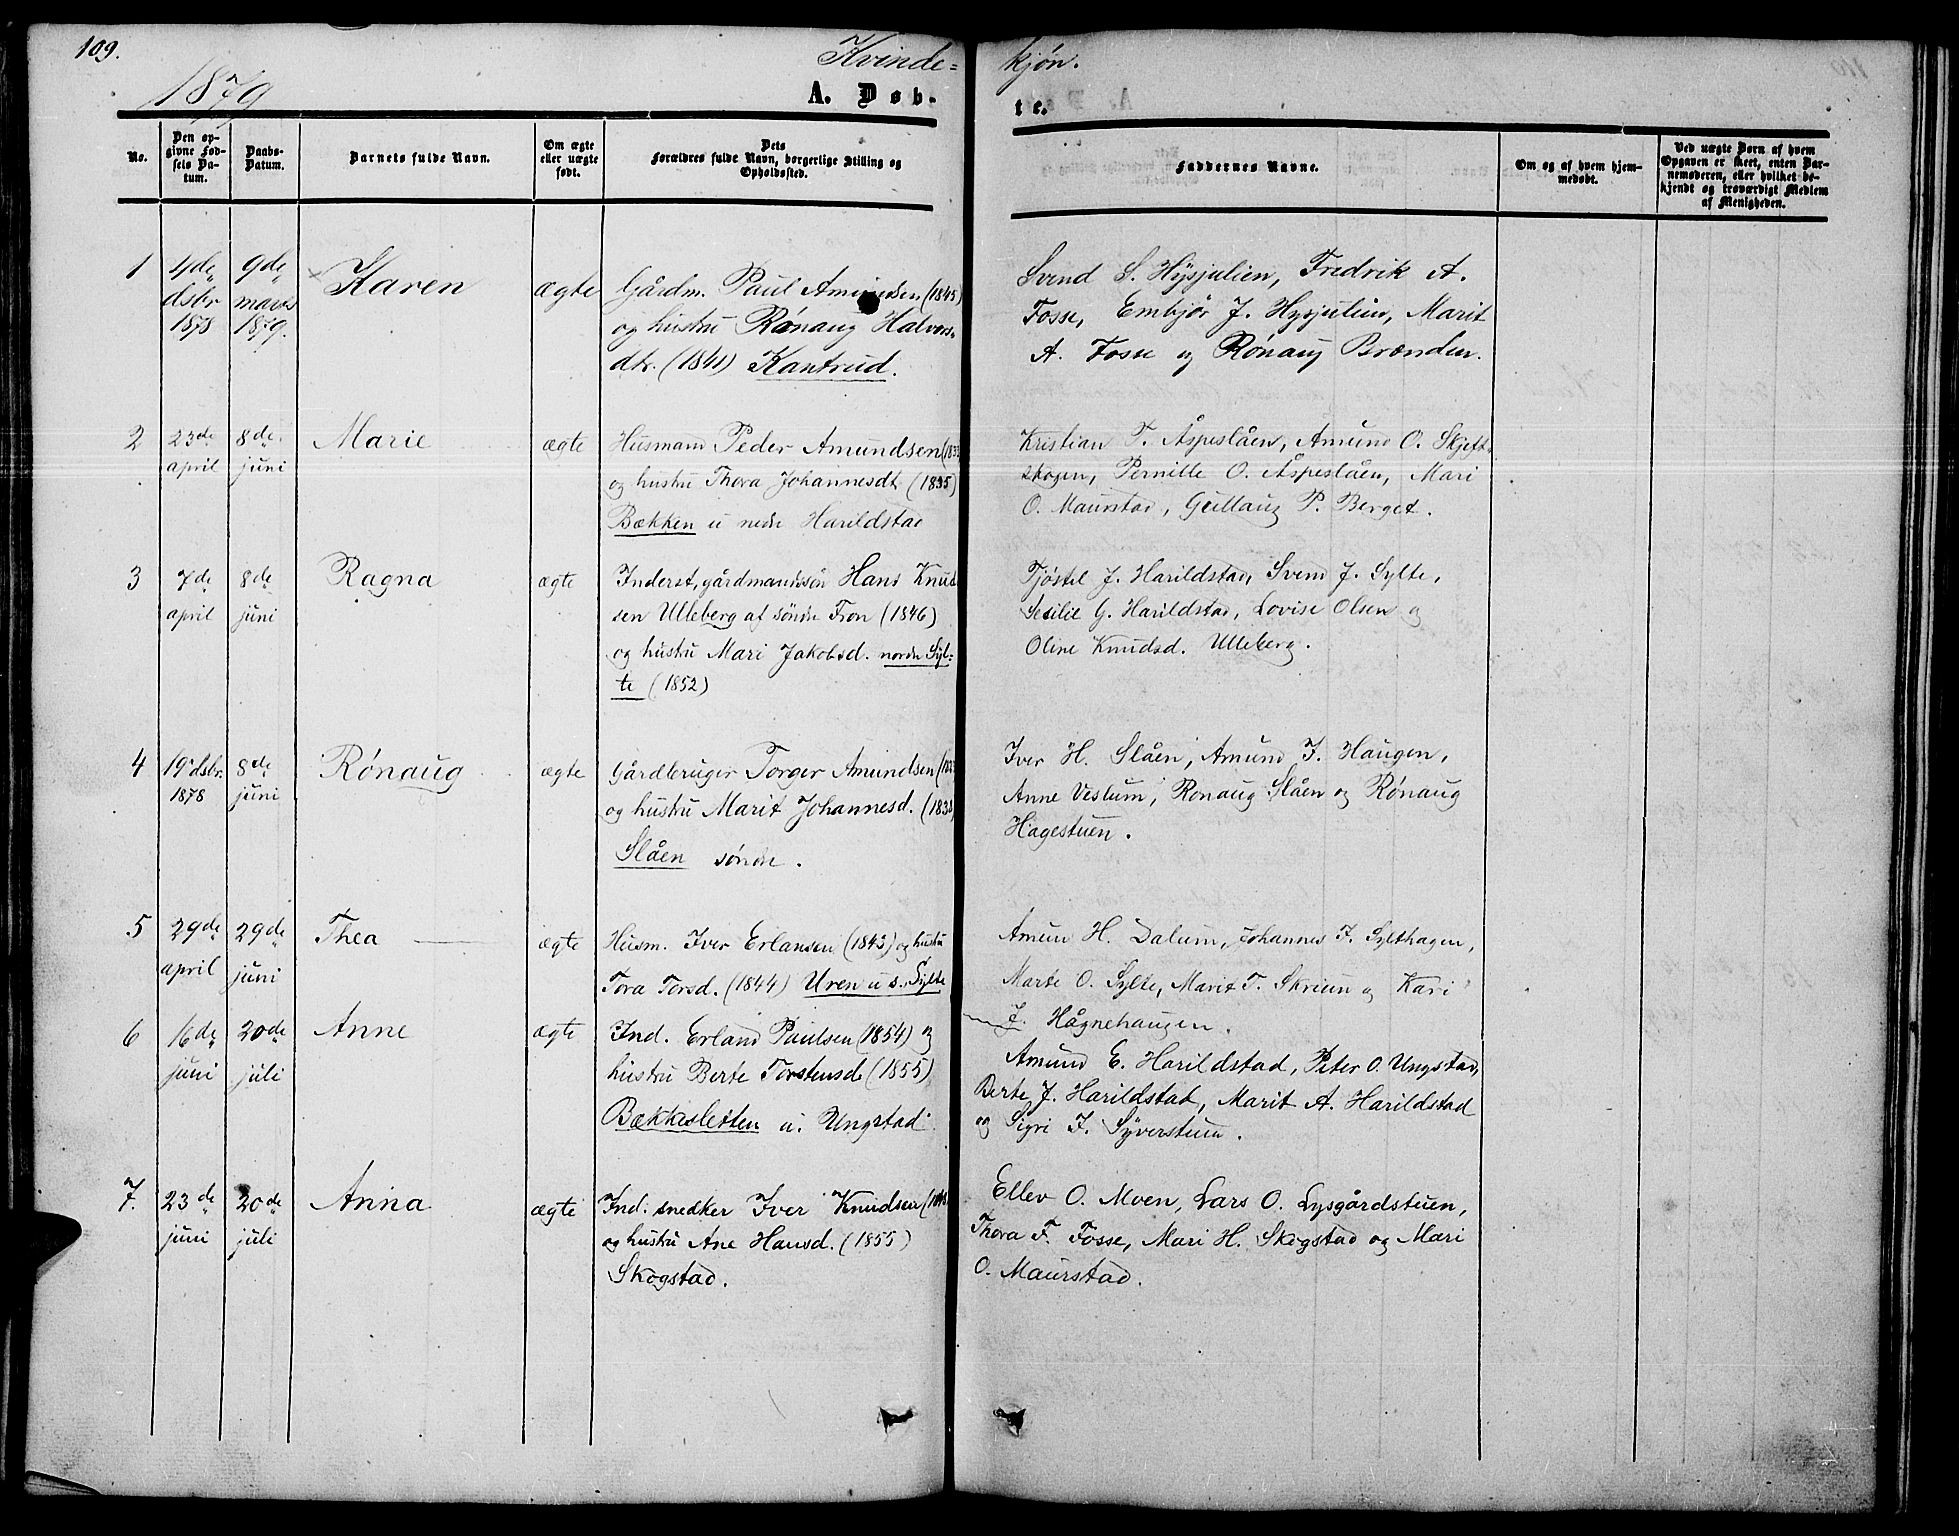 109.
1879
Kvinde=
kjøn.
A. Døb-
te.
No.
Den op-
givne Fød-
sels Da-
tum.
Daabs-
Datum.
Barnets fulde Navn.
Om ægte
eller uægte
født.
Dets
Forældres fulde Navn, borgerlige Stilling og
Opholdssted.
Faddernes Navne.
Om og af hvem hjem-
medøbt.
Ved uægte Børn af hvem
Opgaven er skeet, enten Bar-
nemoderen, eller hvilket be-
kjendt og troværdigt Medlem
af Menigheden.
1
4de
dsbr
1878
9de
marts
1879.
Karen
ægte
Gårdm. Paul Amundsen (1845)
og hustru Rønaug Halvors-
dtr. (1841) Kantrud.
Svend S. Hysjulien, Fredrik A.
Fosse, Embjør J. Hysjulien, Marit
A. Fosse og Rønaug Brænden.
2
23de
april
8de
juni
Marie
ægte
Husmand Peder Amundsen
og hustru Thora Johannesdt. (1835)
Bækken u nedre Harildstad
Kristian T. Aspeslåen, Amund O. Skjett-
skogen, Pernille O. Åspeslåen, Mari
O. Maurstad, Gullaug P. Berget.
3
7de
april
8de
juni
Ragna
ægte
Inderst, gårdmandssøn Hans Knud
sen Ulleberg af søndre Fron (1846)
og hustru Mari Jakobsd. nordre Syl-
te (1852)
Tjøstel J. Harildstad, Svend J. Sylte,
Sesilie G. Harildstad, Lovise Olsen og
Oline Knudsd. Ulleberg.
4
19 dsbr.
1878
8de
juni
Rønaug
ægte
Gårdbruger Torger Amundsen
og hustru Marit Johannesd.
Slåen søndre.
Iver H. Slåen, Amund J. Haugen,
Anne Veslum, Ronaug Slåen og Rønaug
Hagestuen.
5
29de
april
29de
juni
Thea
ægte
Husm. Iver Erlansen (1843) og hustru
Tora Torsd. (1844) Uren u s. Sylte
Amun H. Dalum, Johannes J. Sylthagen,
Marte O. Sylte, Marit T. Skriun og Kari
J. Hågnehaugen.
6
16de
juni
20de
juli
Anne
ægte
Ind. Erland Paulsen (1854) og
hustru Berte Torstensd. (1855)
Bækkesletten u. Ungstad
Amund E. Harildstad, Peter O. Ungstad,
Berte J. Harildstad, Marit A. Harildstad
og Sigri J. Syverstuen.
7.
23de
juni
20de
juli
Anna
ægte
Ind. snedker Iver Knudsen
og hustru Ane Hansd. (1855)
Skogstad.
Ellev O. Moen, Lars O. Lysgårdstuen,
Thora F. Fosse, Mari H. Skogstad og Mari
O. Maurstad.